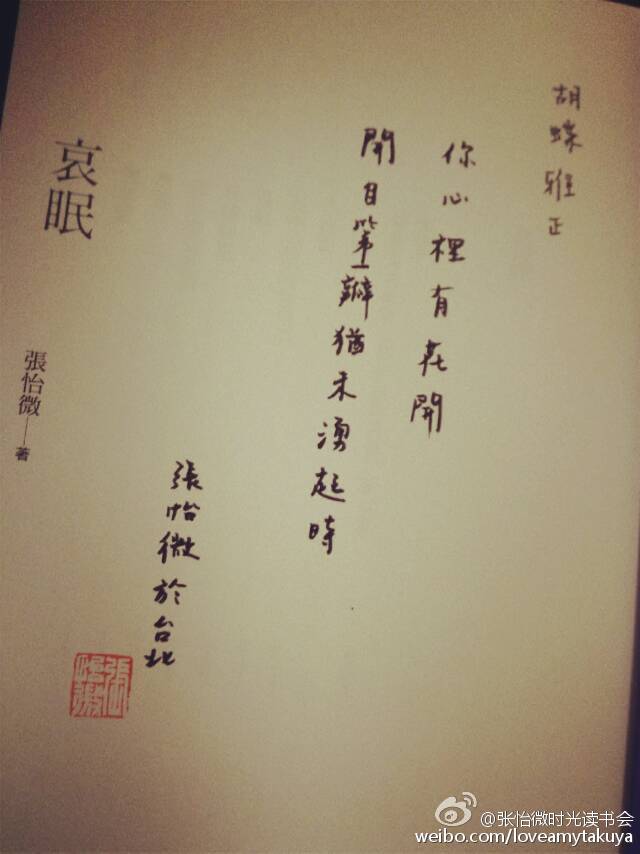 胡蝶雅正
你心裡有花開
開自第一瓣猶未湧起時
張怡微於台北
張怡微
哀眠
張怡微—著
@张怡微时光读书会
weibo.com/loveamytakuya